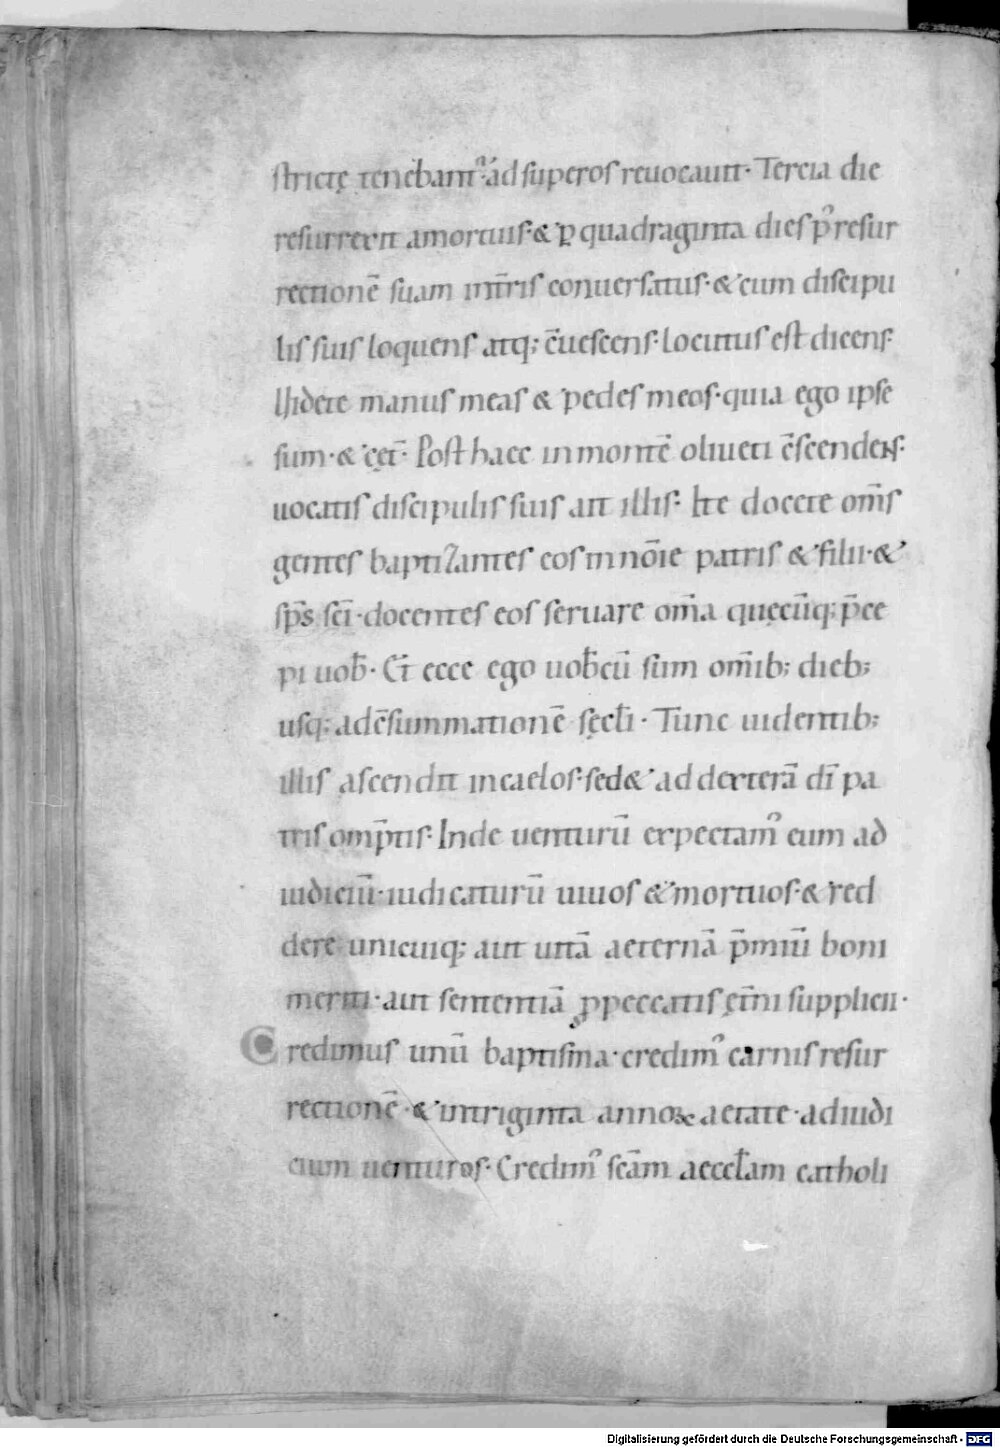 stricte tenebant᷑ ad superos reuocauit. Tercia die
resurrexit amortuis. & ꝑ quadraginta dies pꝰ resur
rectionē suam int̄ris conuersatus. & cum discipu
lis suis loquens atq; c̄uescens. locutus est dicens.
Uidete manus meas & pedes meos. quia ego ipse
sum. & cęt̄. Post haec inmontē oliueti c̄scendens.
uocatis discipulis suis ait illis. Ite docete om̄s
gentes baptizantes eos innōie patris & filii. &
sp̄s sc̄i. docentes eos seruare om̄a quęcūq; p̄ce
pi uob̄. Et ecce ego uob̄cū sum om̄ib; dieb;
usq; adc̄summationē sęcl̄i. Tunc uidentib;
illis ascendit incaelos. sed& ad dexterā dī pa
tris omp̄tis. Inde uenturū expectamꝰ eum ad
iudiciū. iudicaturū uiuos & mortuos. & red
dere unicuiq; aut uitā aeternā p̄miū boni
meriti. aut sententiā ꝓpeccatis ęt̄ni supplicii.
Credimus unū baptisma. credimꝰ carnis resur
rectionē. & intriginta annoꝝ aetate. adiudi
cium uenturos. Credimꝰ sc̄am aeccl̄am catholi
Digitalisierung gefördert durch die Deutsche Forschungsgemeinschaft - DFG